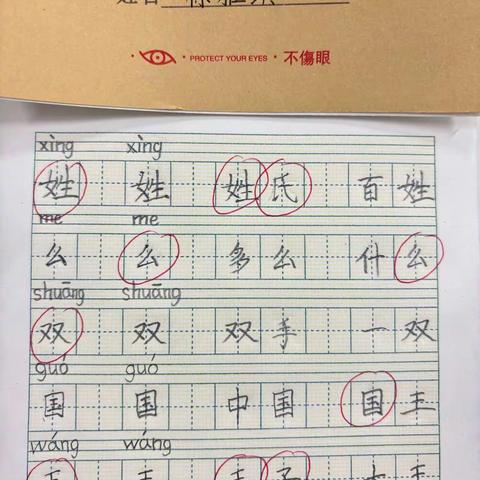 姓名
PROTECT YOUR EYES · 不傷眼
xìng xìng
姓 姓 姓氏 百姓
me me
么 么 多么 什么
shuāng shuāng
双 双 双手 一双
guó guó
国 国 中国 国王
wáng wáng
王 王 王子 大王